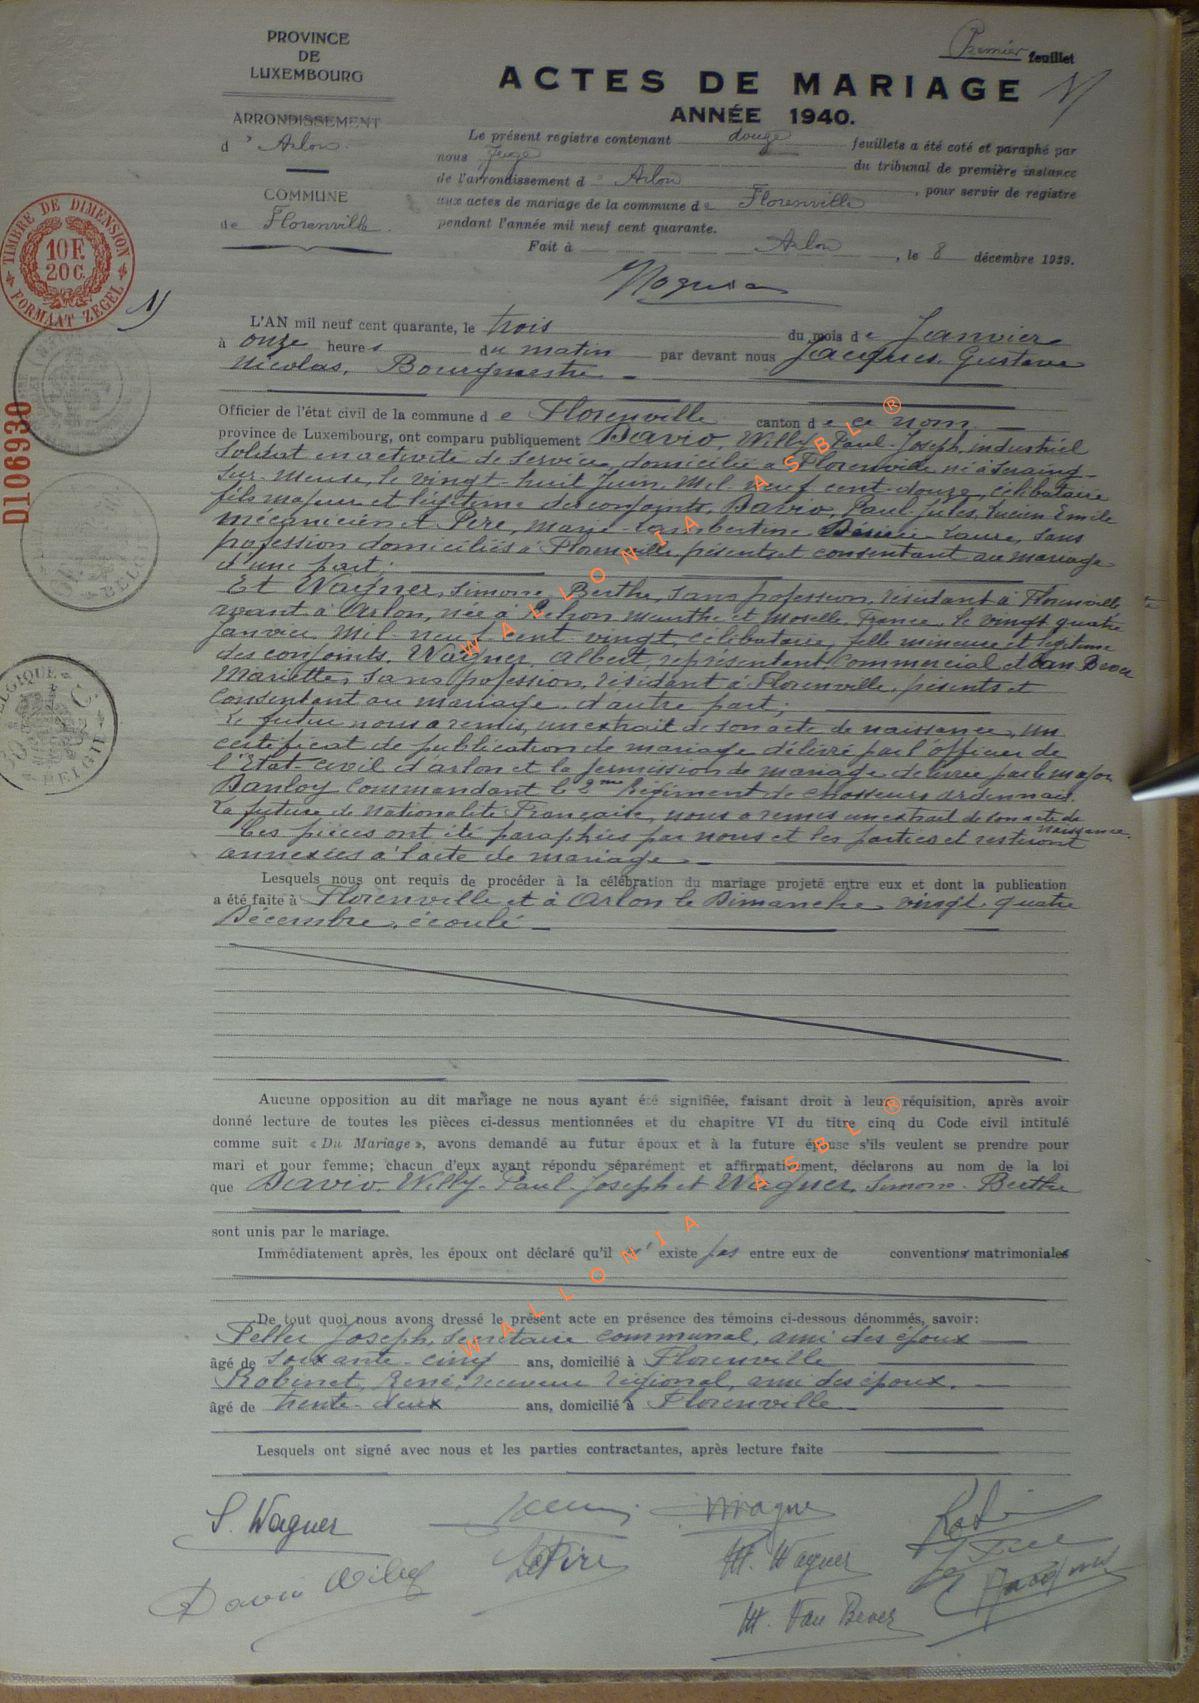 Premier feuillet
PROVINCE
DE
LUXEMBOURG
ACTES DE MARIAGE
ANNÉE 1940.
ARRONDISSEMENT
d' Arlon.
COMMUNE
de Florenville.
Le présent registre contenant douze feuillets a été coté et paraphé par
nous Juge du tribunal de première instance
de l'arrondissement d' Arlon, pour servir de registre
aux actes de mariage de la commune de Florenville
pendant l'année mil neuf cent quarante.
Fait à Arlon, le 8 décembre 1939.
TIMBRE DE DIMENSION
10 F.
20 C.
FORMAAT ZEGEL
D106930
L'AN mil neuf cent quarante, le trois du mois de Janvier
à onze heures du matin par devant nous Jacques, Gustave
Nicolas, Bourgmestre
Officier de l'état civil de la commune de Florenville canton de ce nom
province de Luxembourg, ont comparu publiquement Davio, Willy-Paul-Joseph, industriel
soldat en activité de service, domicilié à Florenville né à Seraing-
sur-Meuse, le vingt-huit Juin, Mil-neuf cent-douze, célibataire
fils majeur et légitime des conjoints, Davio, Paul-Jules, Lucien Emile
mécanicien et Pere, Marie-Lambertine Désirée Laure, sans
profession domiciliés à Florenville, présents et consentant au mariage
d'une part;
Et Wagner, Simone Berthe, sans profession, résidant à Florenville
avant à Arlon, née à Rehon Meurthe et Moselle France, le vingt quatre
Janvier Mil-neuf-cent vingt, célibataire, fille mineure et légitime
des conjoints, Wagner, Albert, représentant commercial et Van Bever
Mariette, sans profession, résidant à Florenville, présents et
consentant au mariage, d'autre part;
Le futur nous a remis, un extrait de son acte de naissance, un
certificat de publication de mariage délivré par l'officier de
l'Etat-civil d'Arlon et la permission de mariage délivrée par le major
Danloy Commandant le 2me Régiment de chasseurs ardennais.
La future de nationalité Française, nous a remis un extrait de son acte de naissance.
Ces pièces ont été paraphées par nous et les parties et resteront
annexées à l'acte de mariage
Lesquels nous ont requis de procéder à la célébration du mariage projeté entre eux et dont la publication
a été faite à Florenville et à Arlon le Dimanche vingt-quatre
Décembre, écoulé
Aucune opposition au dit mariage ne nous ayant été signifiée, faisant droit à leur réquisition, après avoir
donné lecture de toutes les pièces ci-dessus mentionnées et du chapitre VI du titre cinq du Code civil intitulé
comme suit « Du Mariage », avons demandé au futur époux et à la future épouse s'ils veulent se prendre pour
mari et pour femme; chacun d'eux ayant répondu séparément et affirmativement, déclarons au nom de la loi
que Davio, Willy-Paul-Joseph et Wagner, Simone-Berthe
sont unis par le mariage.
Immédiatement après, les époux ont déclaré qu'il n'existe pas entre eux de conventions matrimoniales
De tout quoi nous avons dressé le présent acte en présence des témoins ci-dessous dénommés, savoir:
Peller Joseph, secrétaire communal, ami des époux
âgé de soixante-cinq ans, domicilié à Florenville
Robinet, René, receveur régional, ami des époux.
âgé de trente-deux ans, domicilié à Florenville
Lesquels ont signé avec nous et les parties contractantes, après lecture faite
S. Wagner
Davio Willy
M. Wagner
M. Van Bever
WALLONIA ASBL ®
WALLONIA ASBL ®